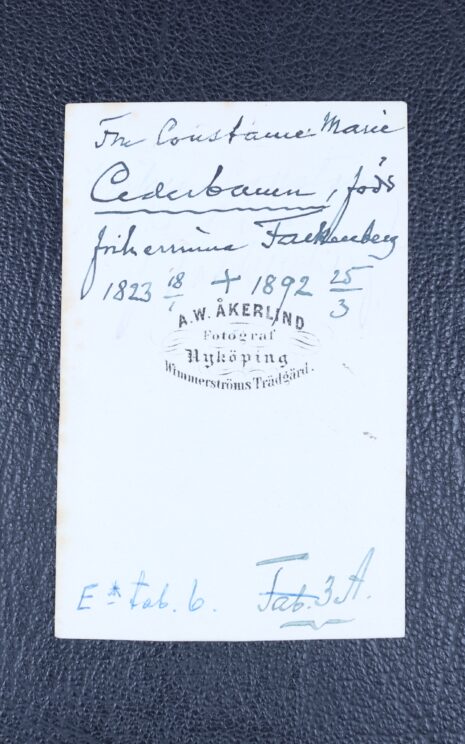 Fru Constance Marie
Cederbaum, född
friherrinna Falkenberg
1823 18/1 + 1892 25/3
A.W. ÅKERLIND
Fotograf
Nyköping
Wimmerströms Trädgård.
E* tab. 6. Tab. 3 A.